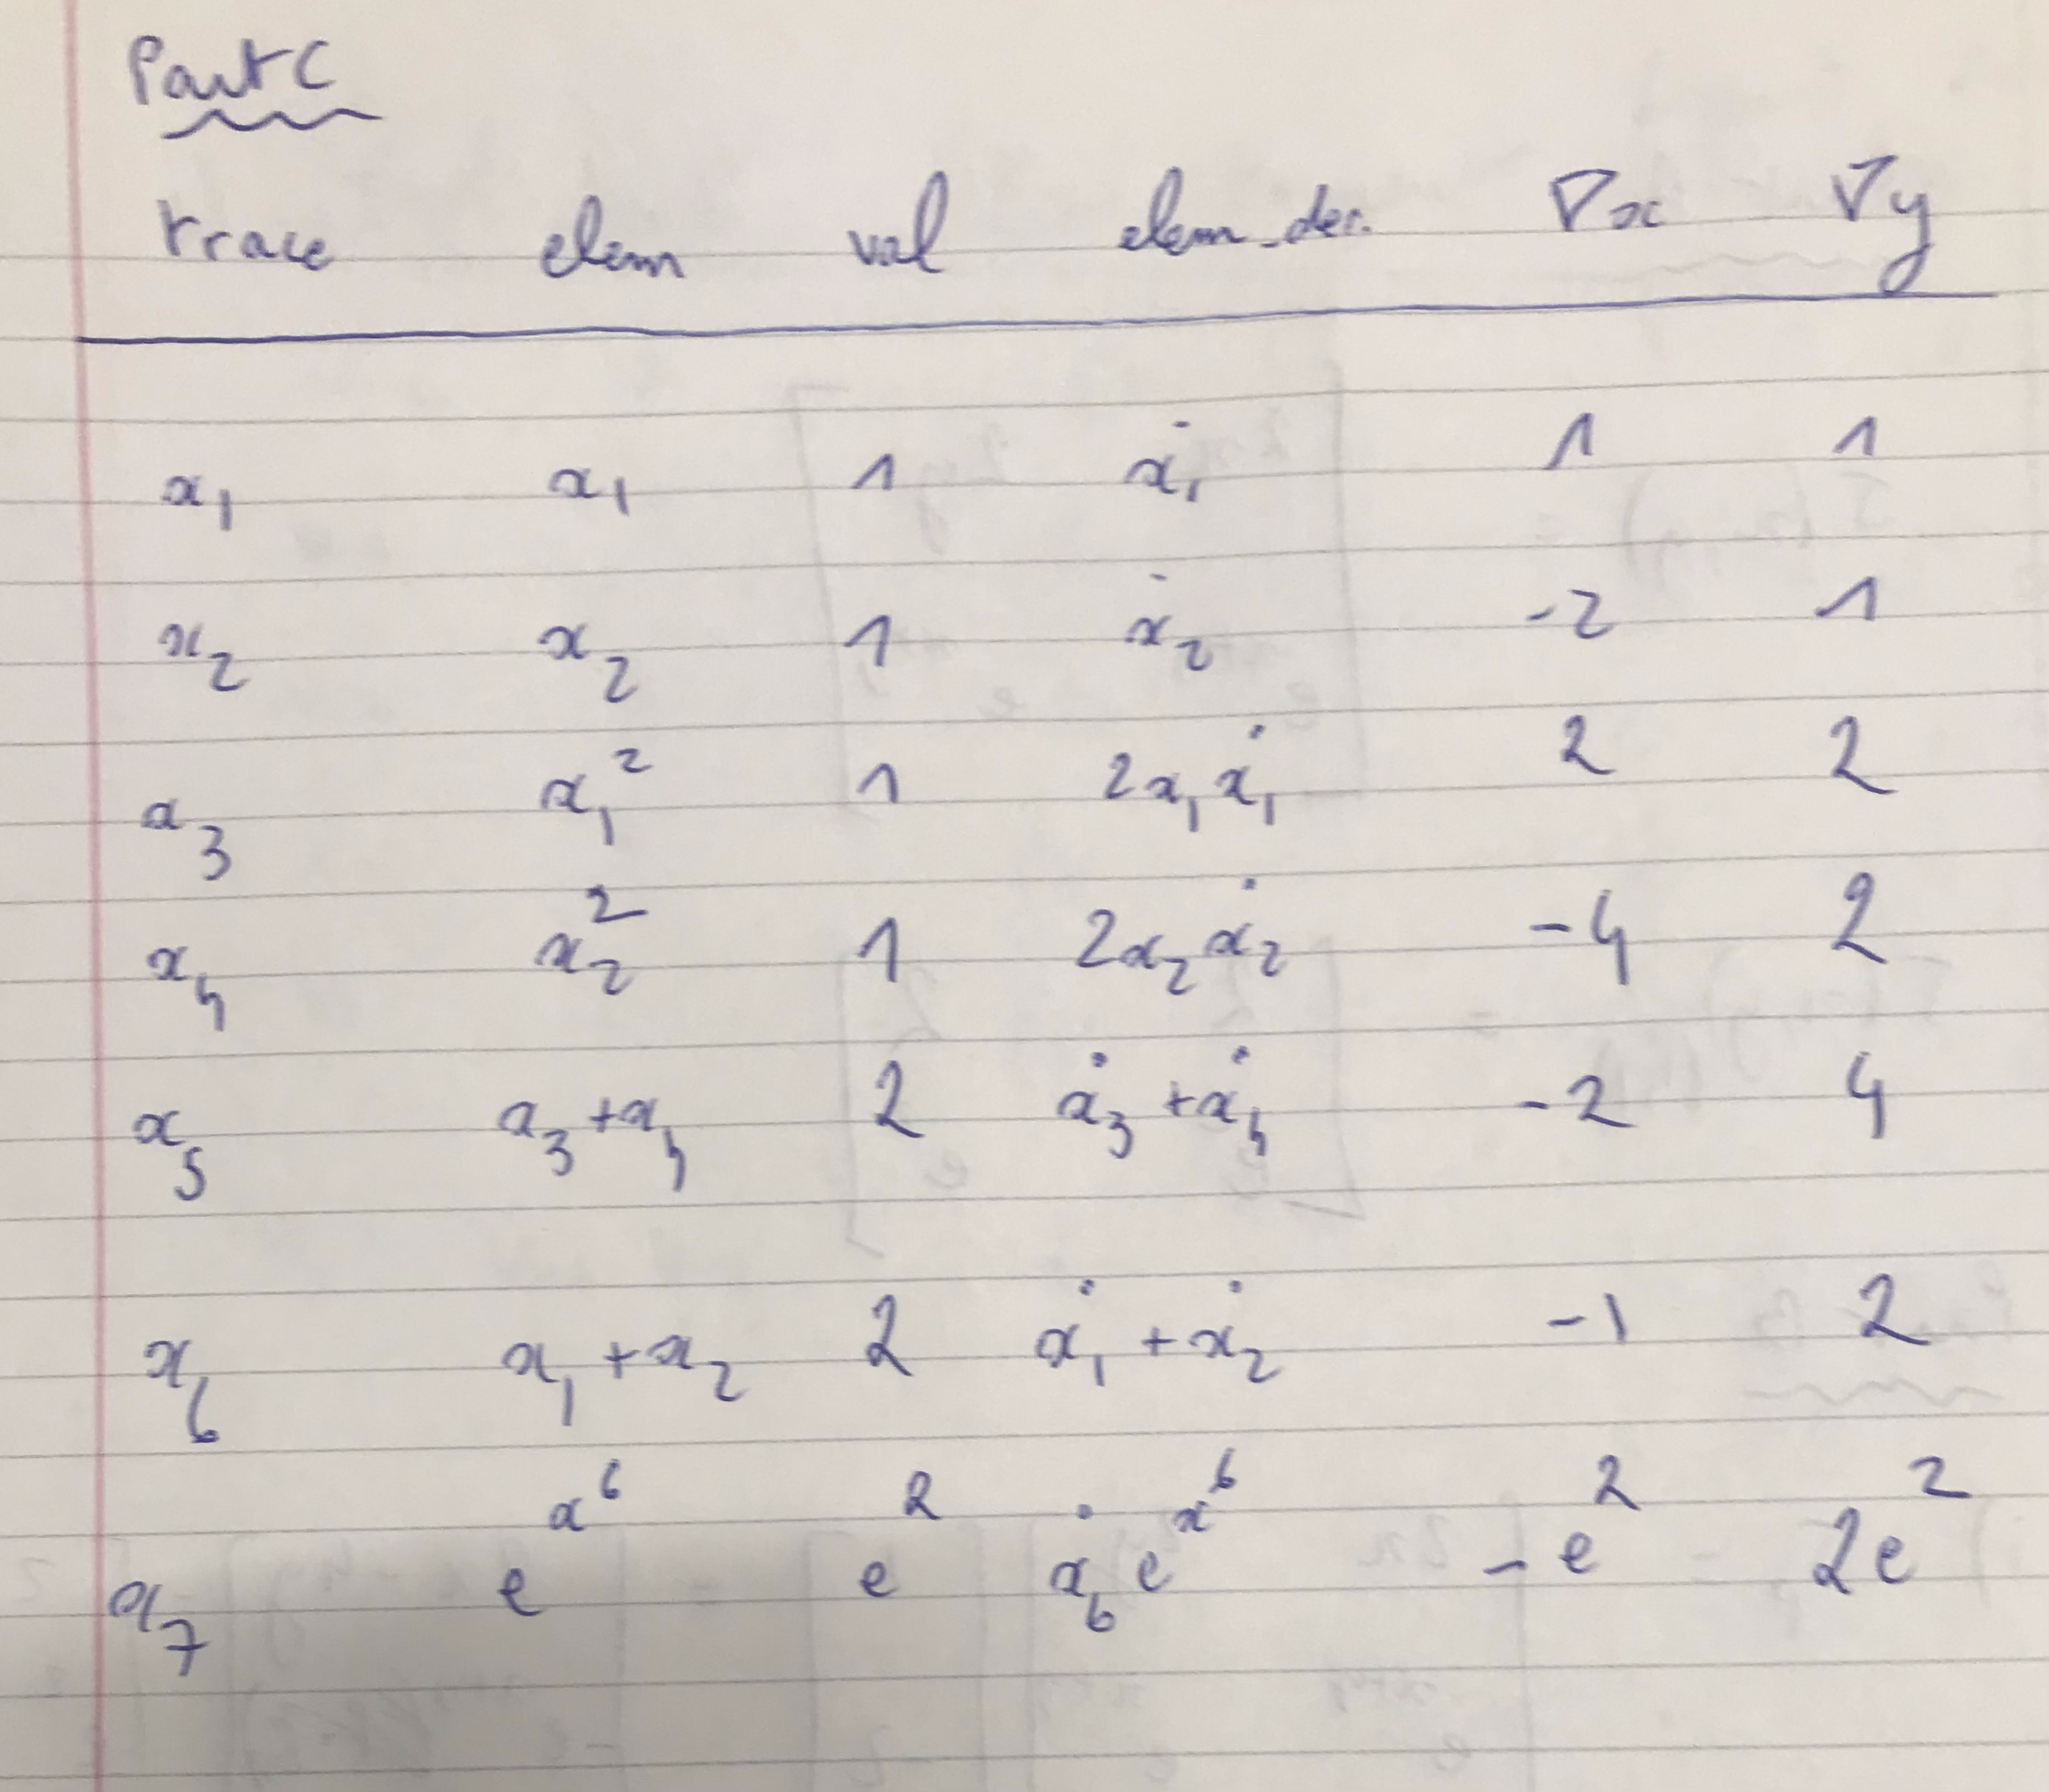 Part C
trace elem val elem_der. ∇x ∇y
x₁ x₁ 1 ẋ₁ 1 1
x₂ x₂ 1 ẋ₂ -2 1
x₃ x₁² 1 2x₁ẋ₁ 2 2
x₄ x₂² 1 2x₂ẋ₂ -4 2
x₅ x₃+x₄ 2 ẋ₃+ẋ₄ -2 4
x₆ x₁+x₂ 2 ẋ₁+ẋ₂ -1 2
x₇ e^x⁶ e² ẋ₆e^x⁶ -e² 2e²